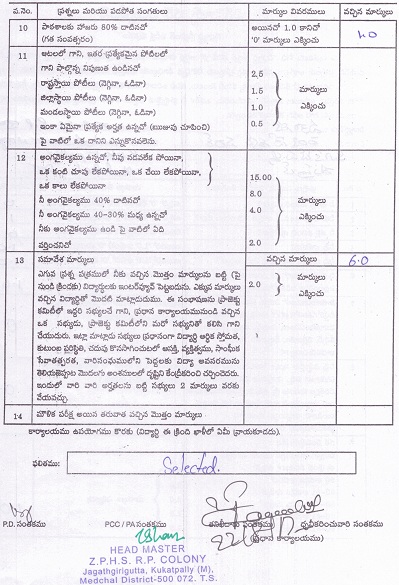 వ.నెం. ప్రశ్నలు మరియు పడపోత సంగతులు మార్కుల వివరములు వచ్చిన మార్కులు
10 పాఠశాలకు హాజరు 80% దాటినచో అయినచో 1.0 కానిచో 1.0
(గత సంవత్సరం) '0' మార్కులు ఎక్కించు
11 ఆటలలో గాని, ఇతర ప్రత్యేకమైన పోటీలలో
గాని పాల్గొన్న నిపుణత ఉండినచో
రాష్ట్రస్థాయి పోటీలు (నెగ్గినా, ఓడినా) 2.5
జిల్లాస్థాయి పోటీలు (నెగ్గినా, ఓడినా) 1.5 మార్కులు
మండలస్థాయి పోటీలు (నెగ్గినా, ఓడినా) 1.0 ఎక్కించు
ఇంకా ఏమైనా ప్రత్యేక అర్హత ఉన్నచో (ఋజువు చూపించి) 0.5
పై వాటిలో ఒక దానిని ఎన్నుకొనవలెను.
12 అంగవైకల్యము ఉన్నచో, నీవు నడవలేక పోయినా,
ఒక కంటి చూపు లేకపోయినా, ఒక చేయి లేకపోయినా,
ఒక కాలు లేకపోయినా 15.00
నీ అంగవైకల్యము 40% దాటినచో 8.0 మార్కులు
నీ అంగవైకల్యము 40-30% మధ్య ఉన్నచో 4.0 ఎక్కించు
నీకు అంగవైకల్యము ఉండి పై వాటిలో ఏది
వర్తించనిచో 2.0
13 సమావేశ మార్కులు వచ్చిన మార్కులు 6.0
ఎగువ ప్రశ్న పత్రములో నీకు వచ్చిన మొత్తం మార్కులను బట్టి (పై
నుండి క్రిందకు) విద్యార్థులకు ఇంటర్వ్యూన్ పెట్టబడును. ఎక్కువ మార్కులు 2.0 మార్కులు
వచ్చిన విద్యార్థితో మొదలి మాట్లాడుదుము. ఈ సంభాషణను ప్రాజెక్టు ఎక్కించు
కమిటీలో ఇద్దరి సభ్యులచే గాని, ప్రధాన కార్యాలయమునుండి వచ్చిన
ఒక సభ్యుడు, ప్రాజెక్టు కమిటీలోని మరో సభ్యునితో కలిసి గాని
చేయుదురు. ఇట్లా మాట్లాడు సభ్యులు ప్రధానంగా విద్యార్థి ఆర్థిక స్తోమత,
కుటుంబ పరిస్థితి, చదువు కొనసాగించుటలో ఆసక్తి, వ్యక్తిత్వము, సాంఘిక
సేవాతత్పరత, వారిసంఘములోని పెద్దలకు విద్యా అవసరమును
తెలియజెప్పుట మొదలగు అంశములలో దృష్టిని కేంద్రీకరించి చర్చించెదరు.
ఇందులో వారి వారి అర్హతలను బట్టి సభ్యులు 2 మార్కులు వరకు
వేయవచ్చు.
14 మౌళిక పరీక్ష అయిన తరువాత వచ్చిన మొత్తం మార్కులు
కార్యాలయము ఉపయోగము కొరకు (విద్యార్థి ఈ క్రింది ఖాళీలో ఏమీ వ్రాయకూడదు).
ఫలితము: Selected.
P.D. సంతకము PCC / PA సంతకము సంతకము ధృవీకరించువారి సంతకము
(ప్రధాన కార్యాలయం)
HEAD MASTER
Z.P.H.S. R.P. COLONY
Jagathgirigutta, Kukatpally (M),
Medchal District-500 072. T.S.